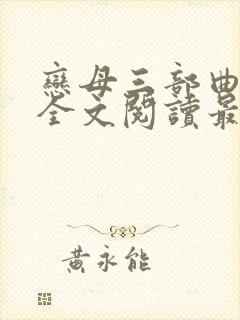 戀母三部曲
全文閱讀最
黃永能